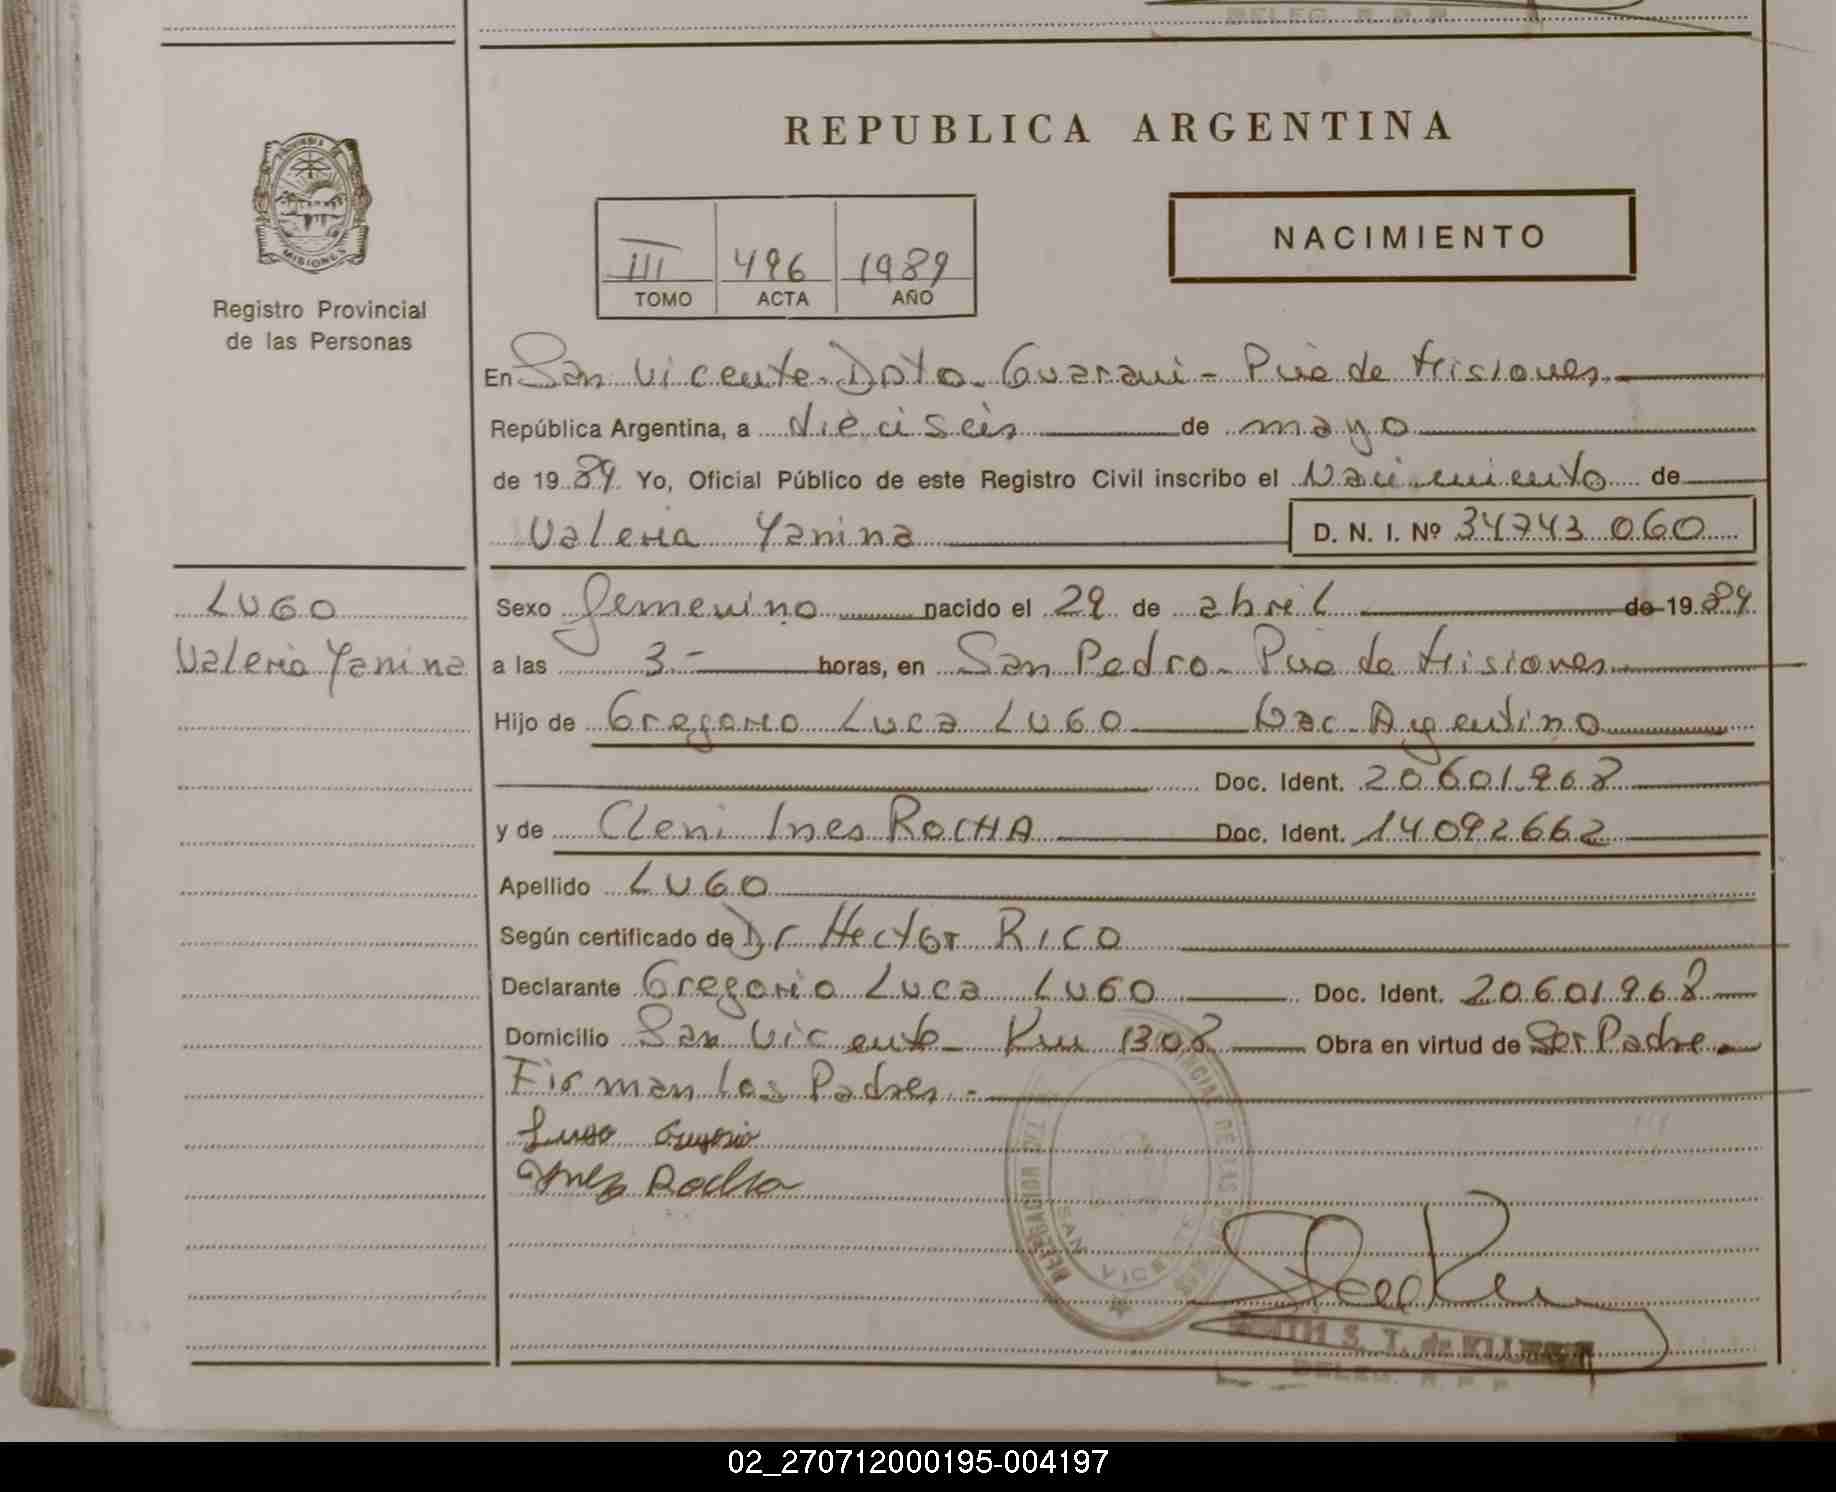 DELEG. R. P. P.
REPUBLICA ARGENTINA
NACIMIENTO
III 496 1989
TOMO ACTA AÑO
PROVINCIA DE
MISIONES
Registro Provincial
de las Personas
En San Vicente Dpto. Guarani - Pcia de Misiones
República Argentina, a dieciseis de mayo
de 19 89 Yo, Oficial Público de este Registro Civil inscribo el Nacimiento de
Valeria Yanina D. N. I. Nº 34743 060
LUGO
Valeria Yanina
Sexo femenino nacido el 29 de abril de 19 89
a las 3.- horas, en San Pedro - Pcia de Misiones
Hijo de Gregorio Luca LUGO Nac. Argentino
Doc. Ident. 20.601.968
y de Cleni Ines ROCHA Doc. Ident. 14092662
Apellido LUGO
Según certificado de Dr Hector RICO
Declarante Gregorio Luca LUGO Doc. Ident. 20.601.968
Domicilio San Vicente - Km 1308 Obra en virtud de Ser Padre
Firman los Padres.-
Lugo Gregorio
Ines Rocha
SAN VICENTE
S. T. de
DELEG. R. P. P.
02_270712000195-004197